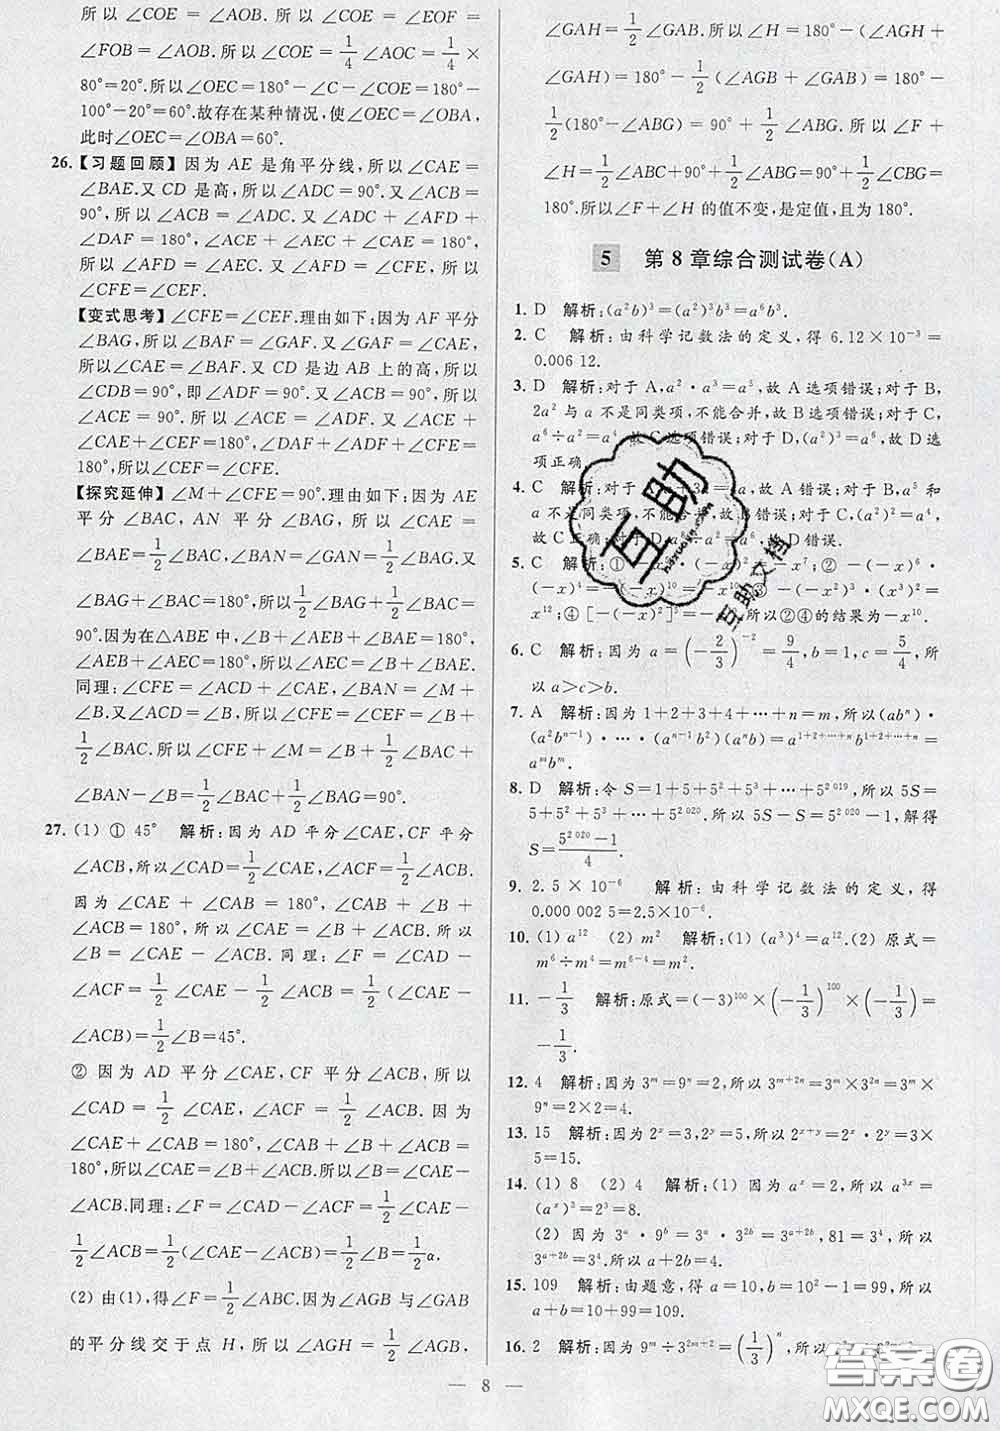 所以∠COE=∠AOB.所以∠COE=∠EOF=
∠FOB=∠AOB.所以∠COE=1/4∠AOC=1/4×
80°=20°.所以∠OEC=180°-∠C-∠COE=180°-
100°-20°=60°.故存在某种情况,使∠OEC=∠OBA,
此时∠OEC=∠OBA=60°.
26.【习题回顾】因为 AE 是角平分线,所以∠CAE=
∠BAE.又 CD 是高,所以∠ADC=90°.又∠ACB=
90°,所以∠ACB=∠ADC.又∠ADC+∠AFD+
∠DAF=180°,∠ACE+∠AEC+∠CAE=180°,
所以∠AFD=∠AEC.又∠AFD=∠CFE,所以
∠CFE=∠CEF.
【变式思考】∠CFE=∠CEF.理由如下:因为 AF 平分
∠BAG,所以∠BAF=∠GAF.又∠GAF=∠CAE,
所以∠CAE=∠BAF.又 CD 是边 AB 上的高,所以
∠CDB=90°,即∠ADF=90°.又∠ACB=90°,所以
∠ACE=90°.所以∠ACE=∠ADF.又∠ACE+
∠CAE+∠CEF=180°,∠DAF+∠ADF+∠CFE=
180°,所以∠CEF=∠CFE.
【探究延伸】∠M+∠CFE=90°.理由如下:因为 AE
平分∠BAC, AN 平分∠BAG,所以∠CAE=
∠BAE=1/2∠BAC,∠BAN=∠GAN=1/2∠BAG.又
∠BAG+∠BAC=180°,所以1/2∠BAG+1/2∠BAC=
90°.因为在△ABE 中,∠B+∠AEB+∠BAE=180°,
∠CEF+∠AEB=180°,所以∠CEF=∠B+∠BAE.
同理:∠CFE=∠ACD+∠CAE,∠BAN=∠M+
∠B.又∠ACD=∠B,所以∠CFE=∠CEF=∠B+
1/2∠BAC.所以∠CFE+∠M=∠B+1/2∠BAC+
∠BAN-∠B=1/2∠BAC+1/2∠BAG=90°.
27.(1) ① 45° 解析:因为 AD 平分∠CAE,CF 平分
∠ACB,所以∠CAD=1/2∠CAE,∠ACF=1/2∠ACB.
因为∠CAE+∠CAB=180°,∠CAB+∠B+
∠ACB=180°,所以∠CAE=∠B+∠ACB.所以
∠B=∠CAE-∠ACB.同理:∠F=∠CAD-
∠ACF=1/2∠CAE-1/2∠ACB=1/2(∠CAE-
∠ACB)=1/2∠B=45°.
② 因为 AD 平分∠CAE,CF 平分∠ACB,所以
∠CAD=1/2∠CAE,∠ACF=1/2∠ACB.因为
∠CAE+∠CAB=180°,∠CAB+∠B+∠ACB=
180°,所以∠CAE=∠B+∠ACB.所以∠B=∠CAE-
∠ACB.同理:∠F=∠CAD-∠ACF=1/2∠CAE-
1/2∠ACB=1/2(∠CAE-∠ACB)=1/2∠B=1/2α.
(2) 由(1),得∠F=1/2∠ABC.因为∠AGB 与∠GAB
的平分线交于点 H,所以∠AGH=1/2∠AGB,
∠GAH=1/2∠GAB.所以∠H=180°-(∠AGH+
∠GAH)=180°-1/2(∠AGB+∠GAB)=180°-
1/2(180°-∠ABG)=90°+1/2∠ABG.所以∠F+
∠H=1/2∠ABC+90°+1/2∠ABG=90°+1/2∠CBG=
180°.所以∠F+∠H 的值不变,是定值,且为 180°.
5 第 8 章综合测试卷(A)
1. D 解析:(a²b)³=(a²)³b³=a⁶b³.
2. C 解析:由科学记数法的定义,得 6.12×10⁻³=
0.006 12.
3. D 解析:对于 A,a²·a³=a⁵,故 A 选项错误;对于 B,
2a² 与 a 不是同类项,不能合并,故 B 选项错误;对于 C,
a⁶÷a²=a⁴,故 C 选项错误;对于 D,(a²)³=a⁶,故 D 选
项正确.
4. C 解析:对于 A,故 A 错误;对于 B,a⁵ 和
a 不是同类项,不能合并,故 B 错误;对于 C,(a²)²=a⁴,
故 C 正确;对于 D,故 D 错误.
5. C 解析:①·(-x)⁵=-x⁷;②-(-x)⁶·
(-x)⁴=-x¹⁰;③
x¹²;④[-(-x)²]⁵=-x¹⁰.所以②④的结果为-x¹⁰.
6. C 解析:因为 a=(-2/3)⁻²=9/4,b=1,c=5/4,所
以 a>c>b.
7. A 解析:因为 1+2+3+4+⋯+n=m,所以(abⁿ)·
(a²bⁿ⁻¹)·⋯·(aⁿ⁻¹b²)(aⁿb)=a¹⁺²⁺⋯⁺ⁿb¹⁺²⁺⋯⁺ⁿ=
aᵐbᵐ.
8. D 解析:令 S=1+5+5²+5³+⋯+5²⁰¹⁹,所以 5S=
5+5²+5³+⋯+5²⁰²⁰.所以 5S-S=5²⁰²⁰-1,解得
S=(5²⁰²⁰-1)/4.
9. 2.5×10⁻⁶ 解析:由科学记数法的定义,得
0.000 002 5=2.5×10⁻⁶.
10. (1) a¹² (2) m² 解析:(1) (a³)⁴=a¹².(2) 原式=
m⁶÷m⁴=m⁶⁻⁴=m².
11. -1/3 解析:原式=(-3)¹⁰⁰×(-1/3)¹⁰⁰×(-1/3)=
-1/3.
12. 4 解析:因为 3ᵐ=9ⁿ=2,所以 3ᵐ⁺²ⁿ=3ᵐ×3²ⁿ=3ᵐ×
9ⁿ=2×2=4.
13. 15 解析:因为 2ˣ=3,2ʸ=5,所以 2ˣ⁺ʸ=2ˣ·2ʸ=3×
5=15.
14. (1) 8 (2) 4 解析:(1) 因为 aˣ=2,所以 a³ˣ=
(aˣ)³=2³=8.
(2) 因为 3ᵃ·9ᵇ=3ᵃ·3²ᵇ=3ᵃ⁺²ᵇ,81=3⁴,所以
3ᵃ⁺²ᵇ=3⁴.所以 a+2b=4.
15. 109 解析:由题意,得 a=10,b=10²-1=99,所以
a+b=10+99=109.
16. 2 解析:因为 9ᵐ÷3²ᵐ⁺²=(1/3)ⁿ,所以
— 8 —
互助
互助文档
答案卷
MXQE.COM